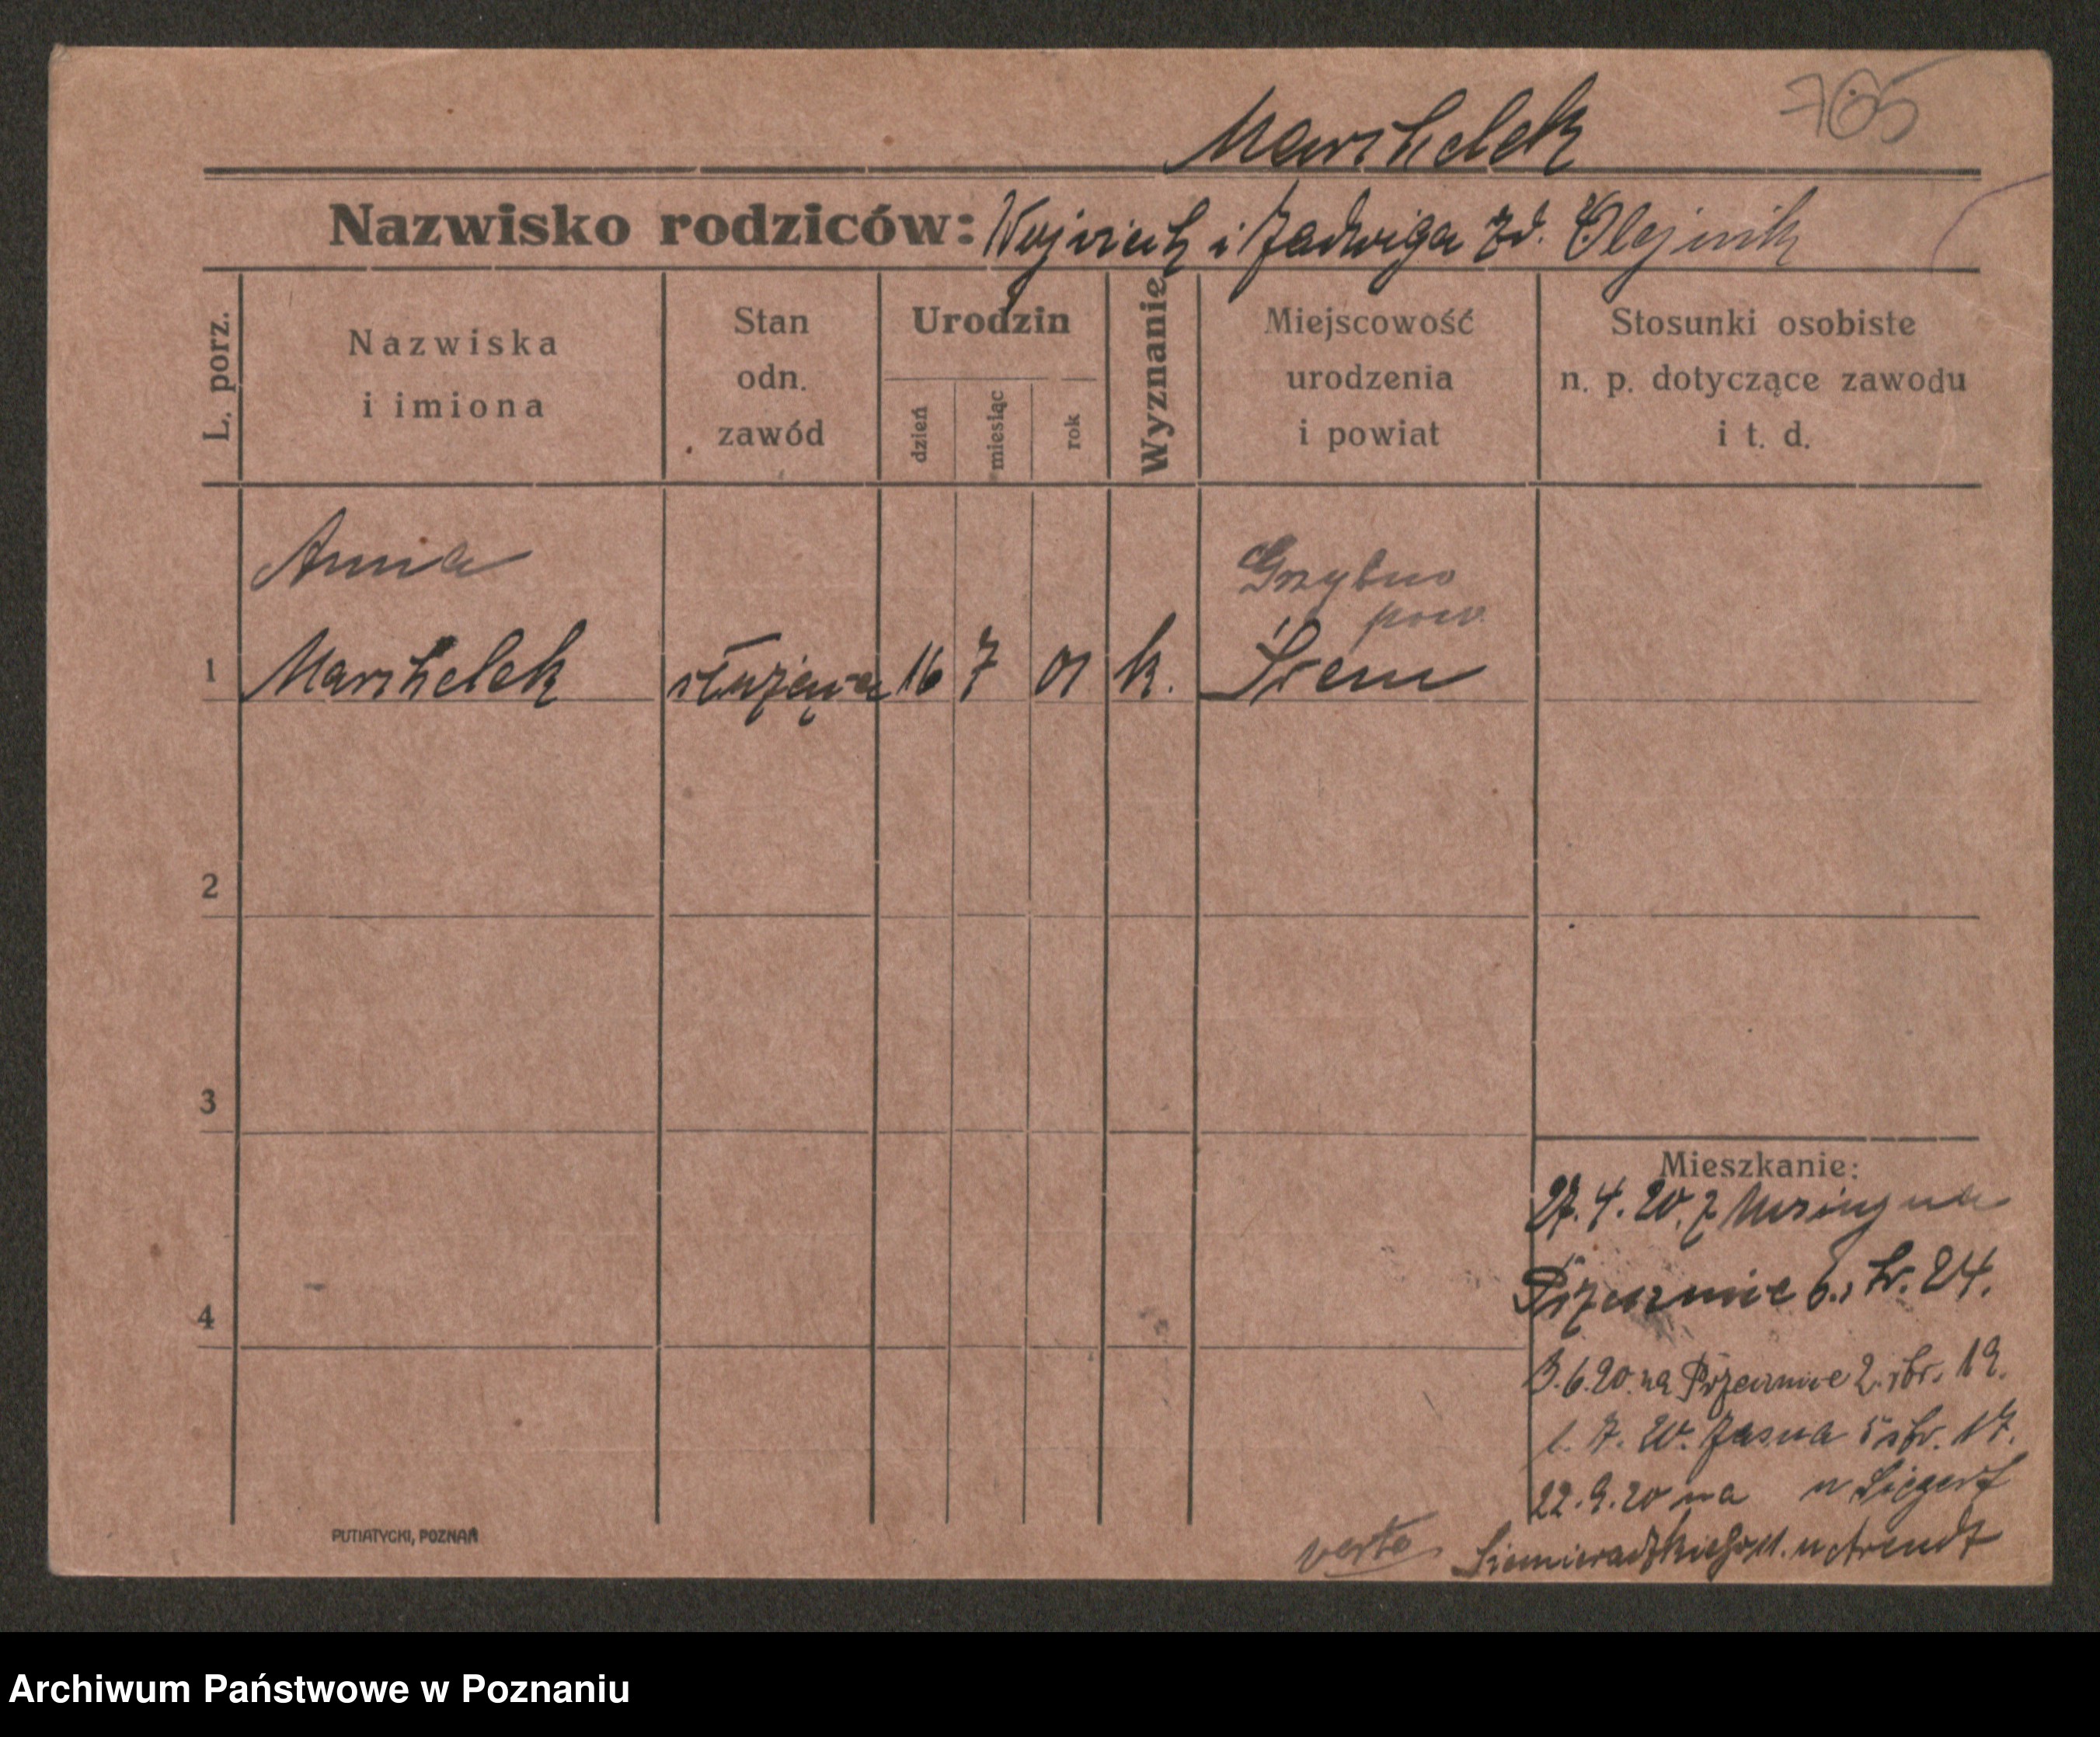 765
Marshelek
Nazwisko rodziców: Wojciech i Jadwiga zd. Olejnik
L. porz.
Nazwiska
i imiona
Stan
odn.
zawód
Urodzin
dzień
miesiąc
rok
Wyznanie
Miejscowość
urodzenia
i powiat
Stosunki osobiste
n. p. dotyczące zawodu
i t. d.
Anna
Grzybno
pow
1 Marshelek służąca 16 7 01 k. Śrem
2
3
4
Mieszkanie:
27. 4. 20. z na
Przecznica 6., br. 24.
3. 6. 20. na Przecznice 2. str. 19.
1. 7. 20. Jasna 5 str. 17.
22. 9. 20 na u
Siemieradzkiego 11. u Arendt
verte
PUTIATYCKI, POZNAŃ
Archiwum Państwowe w Poznaniu